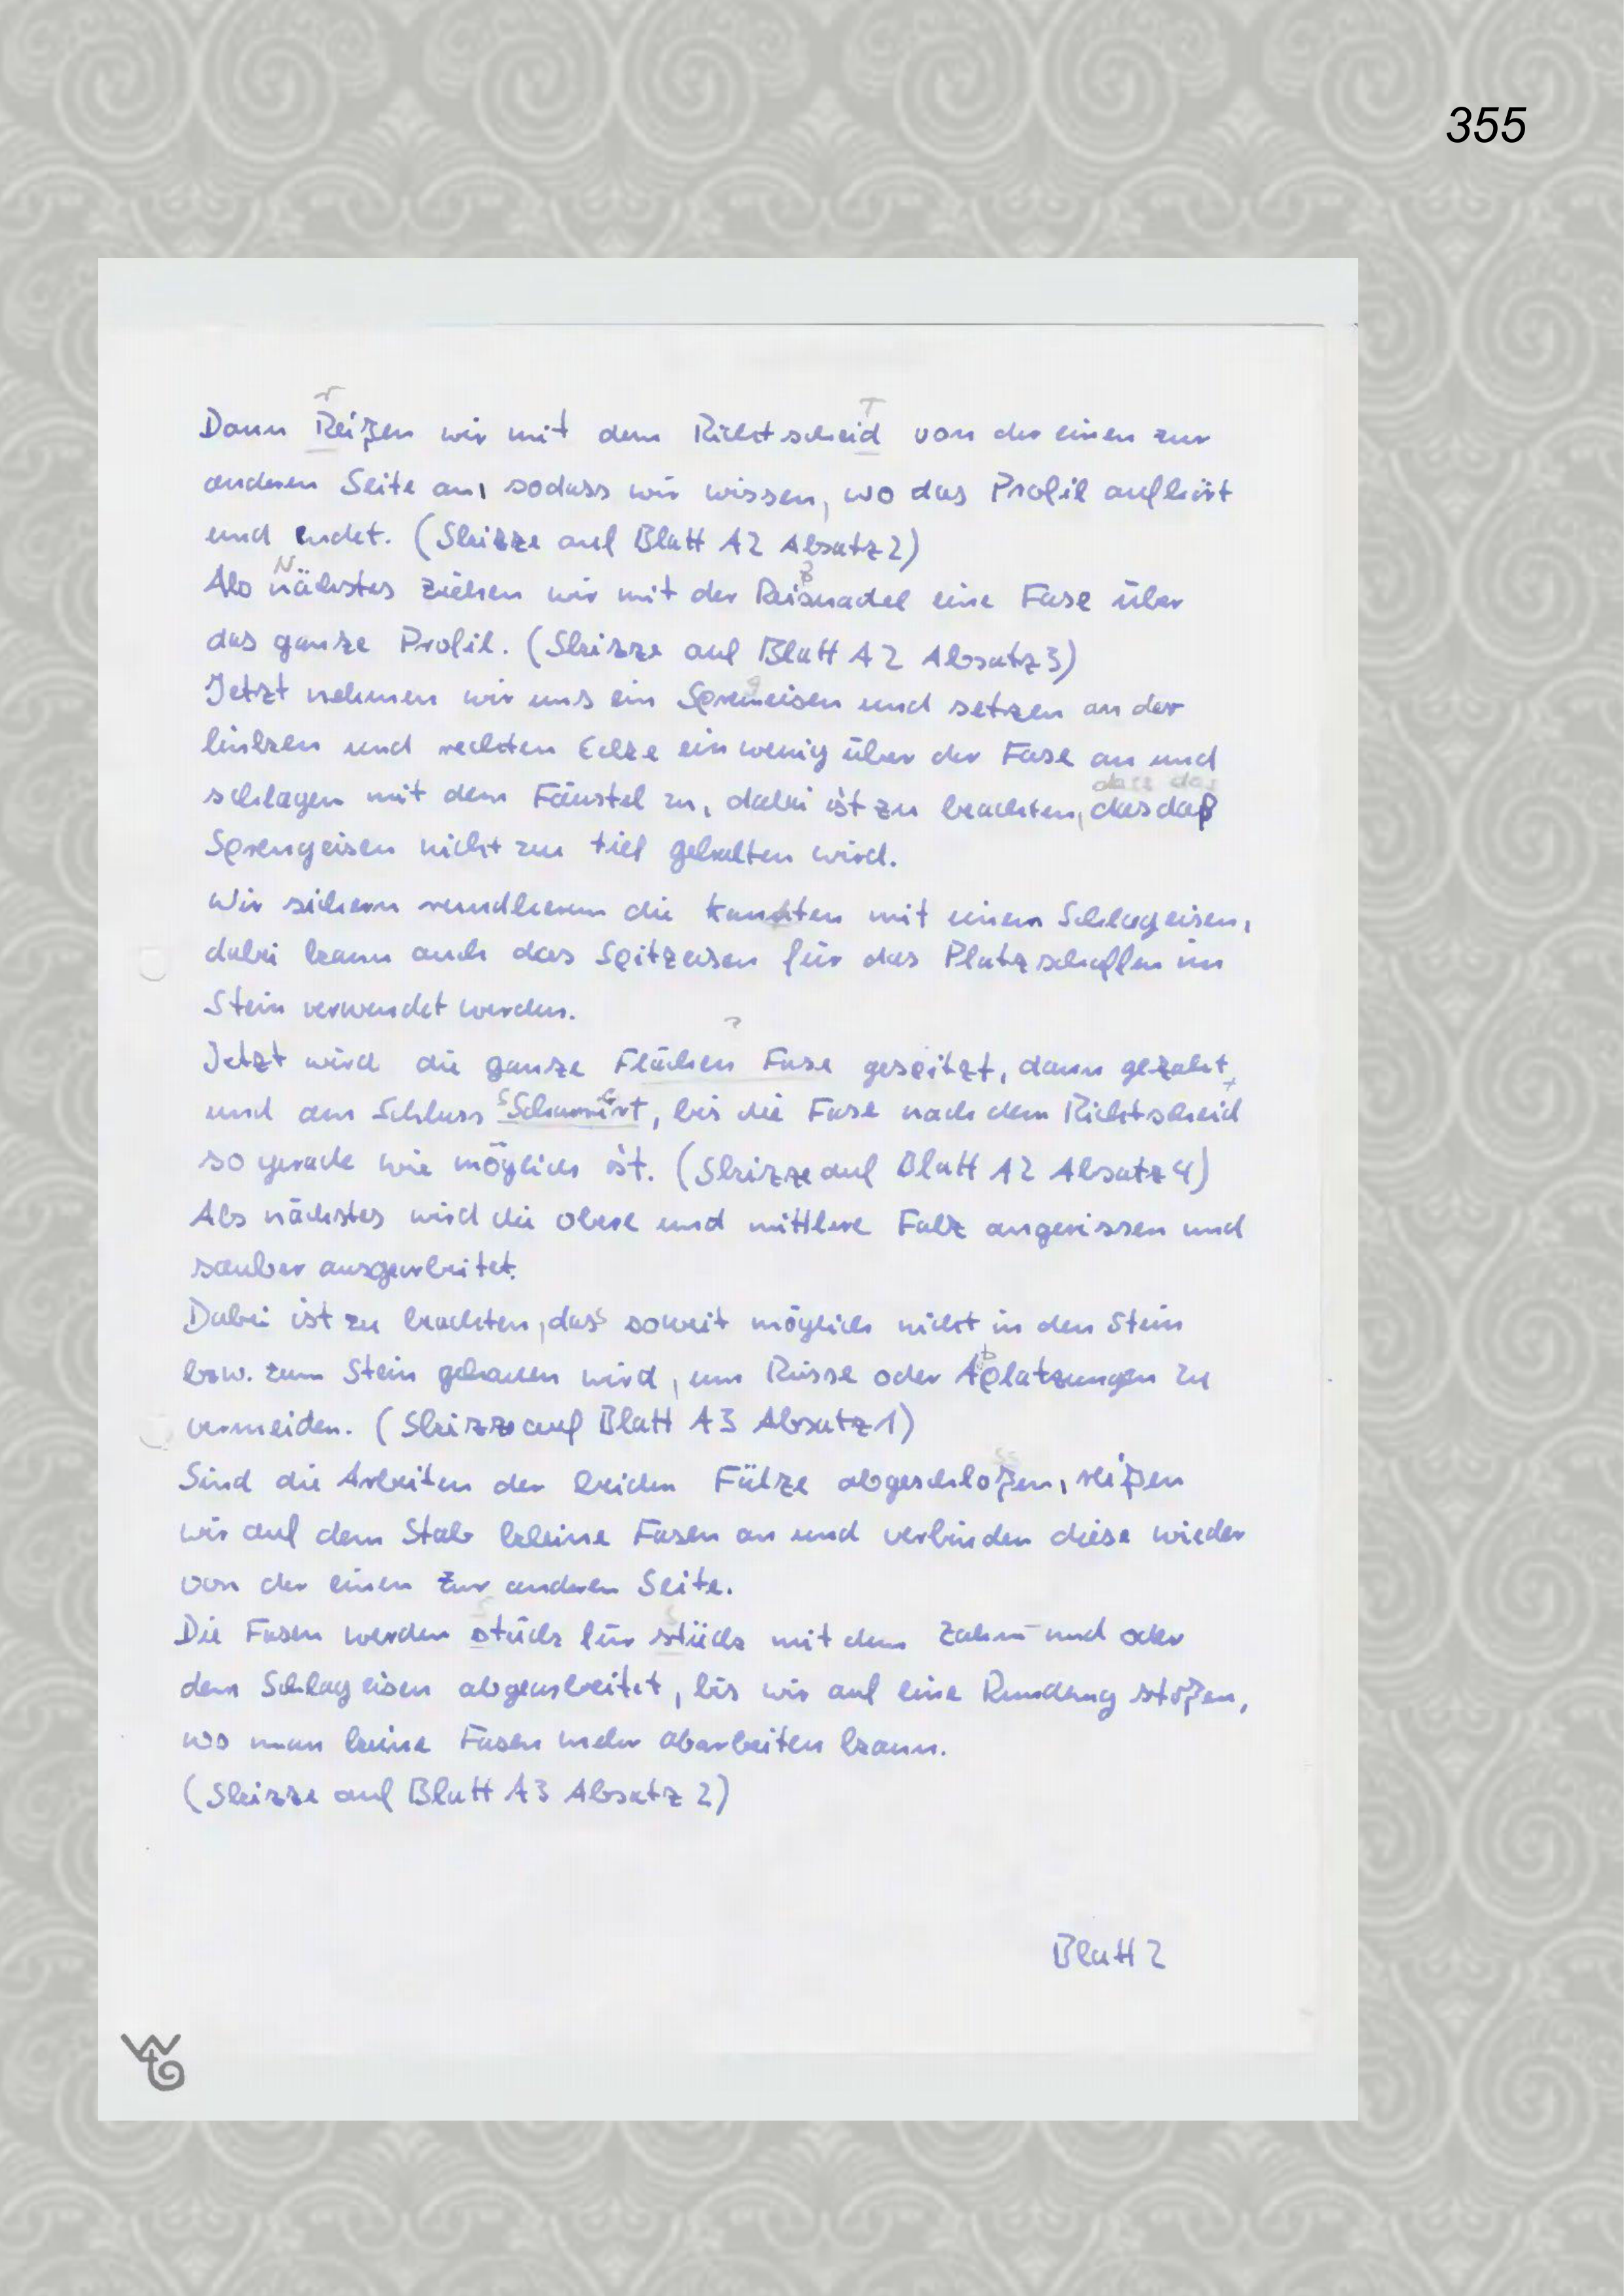 355
Dann Reißen wir mit dem Richtscheid von der einen zur
anderen Seite an, sodass wir wissen, wo das Profil aufhört
und endet. (Skizze auf Blatt A2 Absatz 2)
Als nächstes ziehen wir mit der Reisnadel eine Fase über
das ganze Profil. (Skizze auf Blatt A2 Absatz 3)
Jetzt nehmen wir uns ein Sprengeisen und setzen an der
linken und rechten Ecke ein wenig über der Fase an und
schlagen mit dem Fäustel zu, dabei ist zu beachten, das daß
Sprengeisen nicht zu tief gehalten wird.
Wir sichern rundherum die Kanten mit einem Schlageisen,
dabei kann auch das Spitzeisen für das Platz schaffen im
Stein verwendet werden.
Jetzt wird die ganze Flächen Fase gespitzt, dann gezahnt
und am Schluss Scharriert, bis die Fase nach dem Richtscheid
so gerade wie möglich ist. (Skizze auf Blatt A2 Absatz 4)
Als nächstes wird die obere und mittlere Falz angerissen und
sauber ausgearbeitet.
Dabei ist zu beachten, dass soweit möglich nicht in den Stein
bzw. zum Stein gehauen wird, um Risse oder Aplatzungen zu
vermeiden. (Skizze auf Blatt A3 Absatz 1)
Sind die Arbeiten der beiden Fälze abgeschloßen, reißen
wir auf dem Stab kleine Fasen an und verbinden diese wieder
von der einen zur anderen Seite.
Die Fasen werden stück für stück mit dem Zahn- und oder
dem Schlageisen abgearbeitet, bis wir auf eine Rundung stoßen,
wo man keine Fasen mehr abarbeiten kann.
(Skizze auf Blatt A3 Absatz 2)
Blatt 2